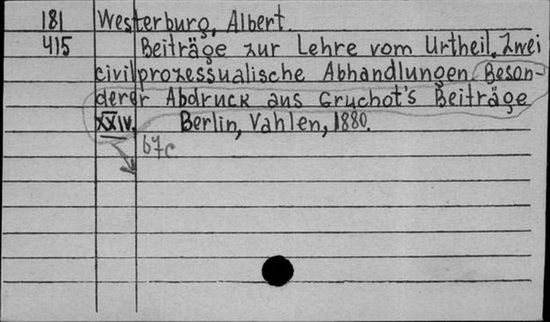 181 Westerburg, Albert.
415 Beiträge zur Lehre vom Urtheil. Zwei
civilprozessualische Abhandlungen. Beson-
derer Abdruck aus Gruchot's Beiträge
XXIV. Berlin, Vahlen, 1880.
67c